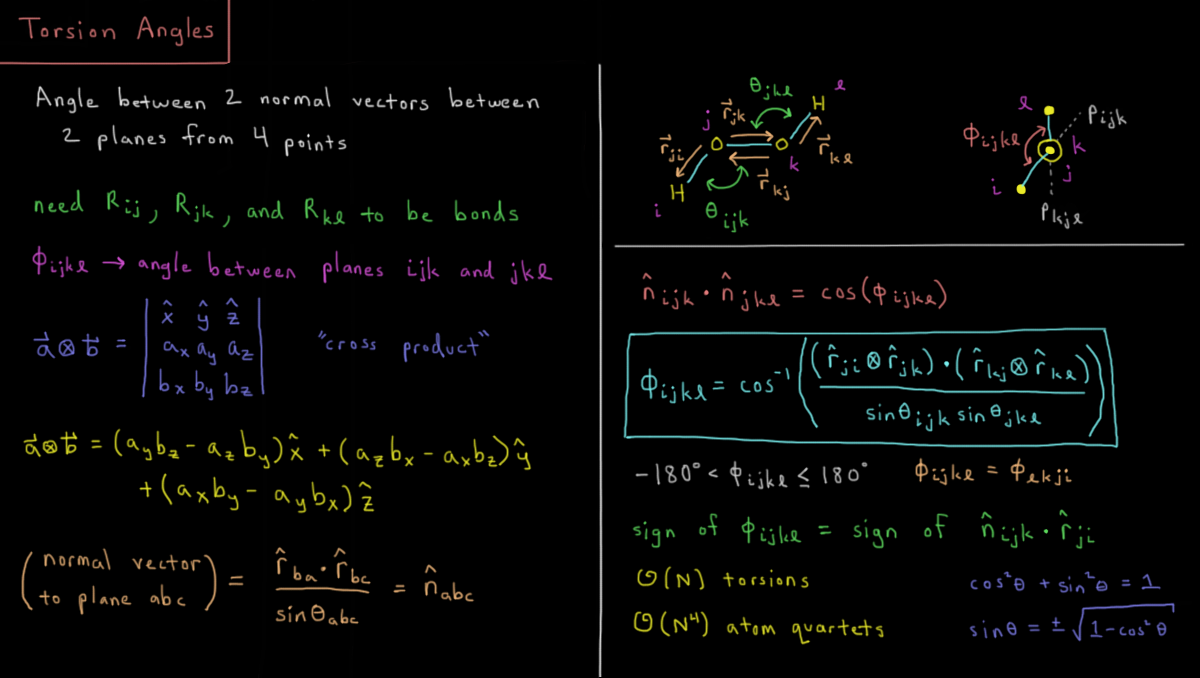 Torsion Angles
Angle between 2 normal vectors between
2 planes from 4 points
need Rij, Rjk, and Rkl to be bonds
ϕijkl → angle between planes ijk and jkl
a⃗ ⊗ b⃗ = | x̂ ŷ ẑ |
| ax ay az |
| bx by bz |
"cross product"
a⃗ ⊗ b⃗ = (aybz - azby)x̂ + (azbx - axbz)ŷ
+ (axby - aybx)ẑ
(normal vector to plane abc) = r̂ba · r̂bc / sinθabc = n̂abc
θjkl
H l
j r⃗jk
r⃗ji O O r⃗kl
k
H r⃗kj
i θijk
l Pijk
ϕijkl k
j
i
Pkjl
n̂ijk · n̂jkl = cos(ϕijkl)
ϕijkl = cos⁻¹((r̂ji ⊗ r̂jk) · (r̂kj ⊗ r̂kl) / sinθijk sinθjkl)
-180° < ϕijkl ≤ 180° ϕijkl = ϕlkji
sign of ϕijkl = sign of n̂ijk · r̂ji
O(N) torsions
cos²θ + sin²θ = 1
O(N⁴) atom quartets
sinθ = ±√1-cos²θ